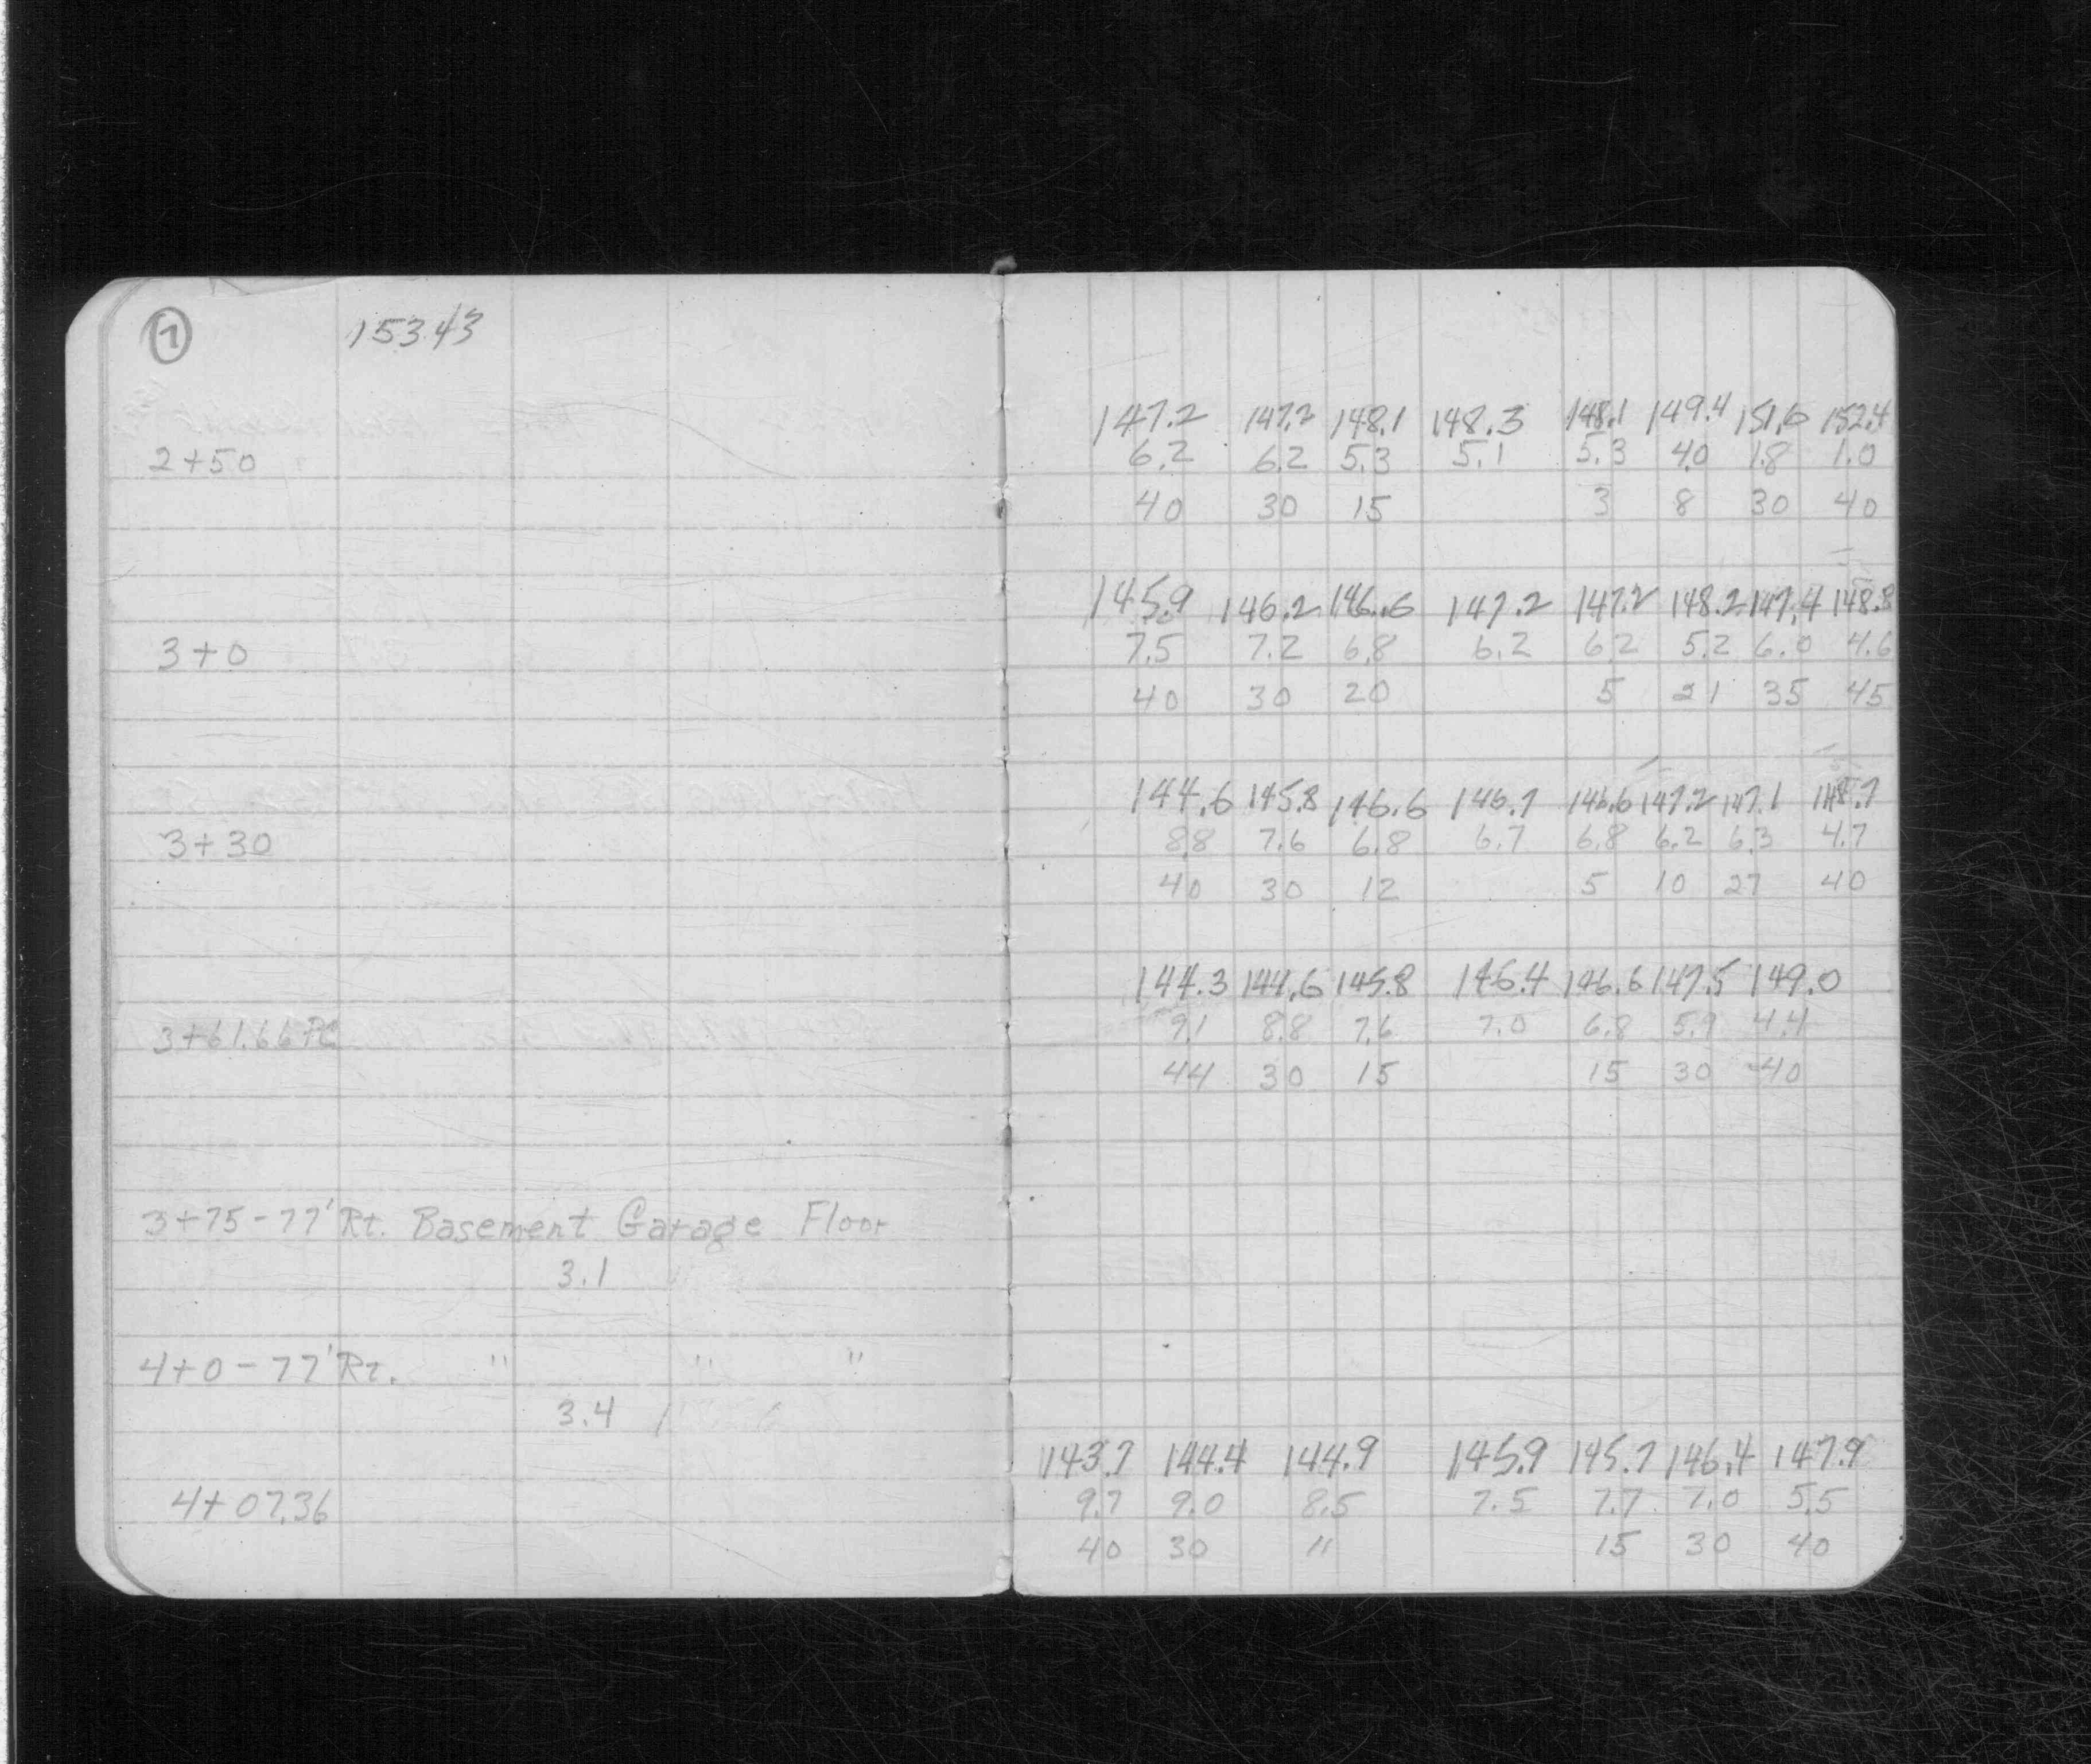 1 153.43
147.2 147.2 148.1 148.3 148.1 149.4 151.6 152.4
2+50 6.2 6.2 5.3 5.1 5.3 4.0 1.8 1.0
40 30 15 3 8 30 40
145.9 146.2 146.6 147.2 147.2 148.2 147.4 148.8
3+0 7.5 7.2 6.8 6.2 6.2 5.2 6.0 4.6
40 30 20 5 21 35 45
144.6 145.8 146.6 146.7 146.6 147.2 147.1 148.7
3+30 8.8 7.6 6.8 6.7 6.8 6.2 6.3 4.7
40 30 12 5 10 27 40
144.3 144.6 145.8 146.4 146.6 147.5 149.0
3+61.66 PC 9.1 8.8 7.6 7.0 6.8 5.9 4.4
44 30 15 15 30 40
3+75-77' Rt. Basement Garage Floor
3.1
4+0-77' Rt. " " "
3.4
143.7 144.4 144.9 145.9 145.7 146.4 147.9
4+07.36 9.7 9.0 8.5 7.5 7.7 7.0 5.5
40 30 11 15 30 40